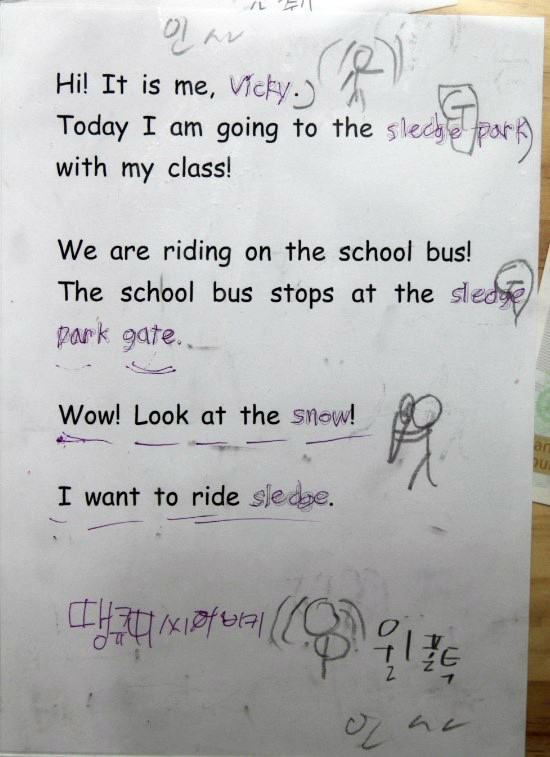 인사
Hi! It is me, Vicky.
Today I am going to the sledge park
with my class!
We are riding on the school bus!
The school bus stops at the sledge
park gate.
Wow! Look at the snow!
I want to ride sledge.
인사